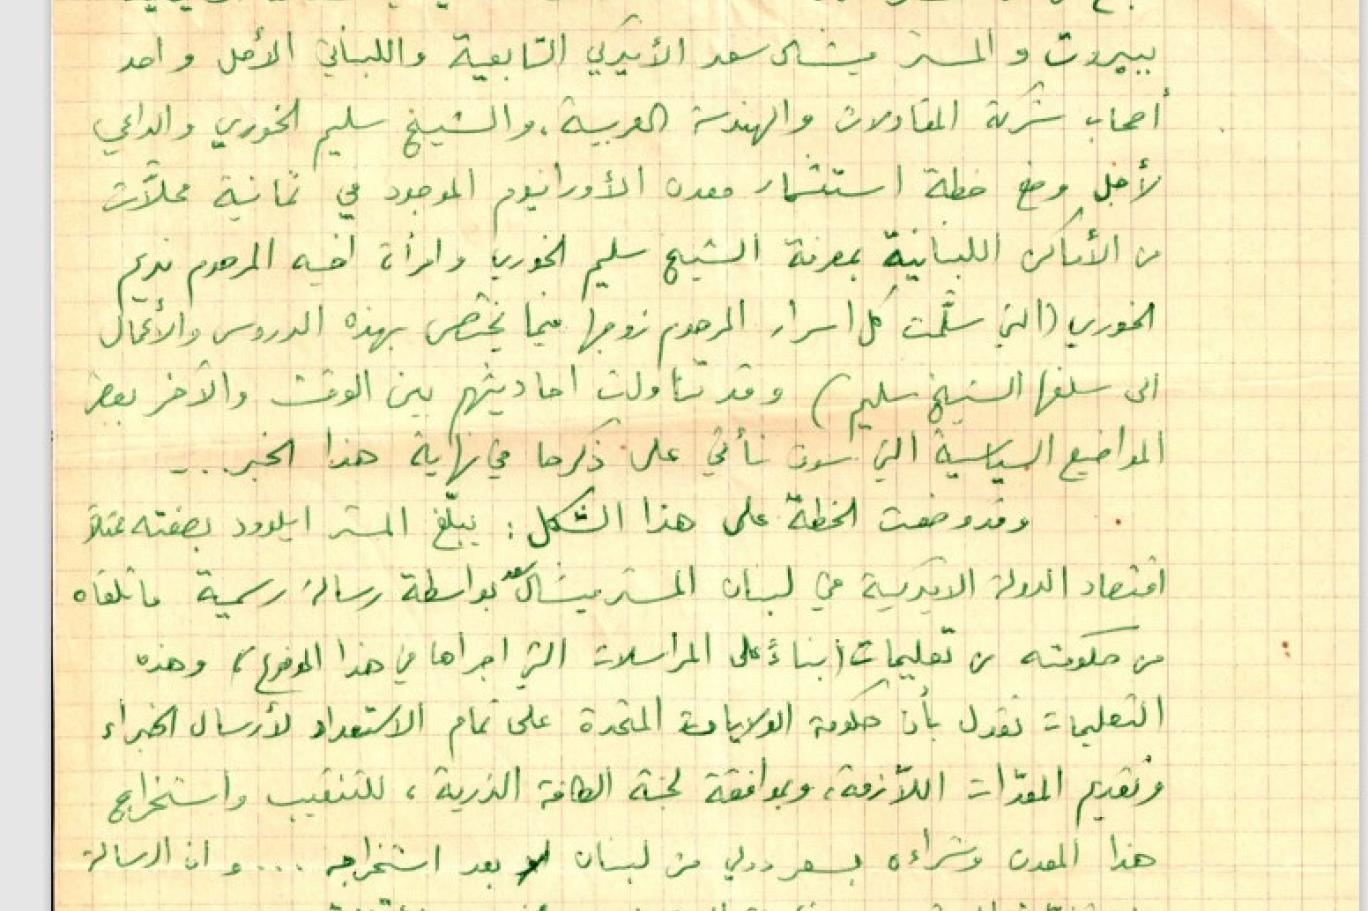 ببيروت والمستر ميشال سعد الأميركي التابعية واللبناني الأصل واحد
أصحاب شركة المقاولات والهندسة العربية، والشيخ سليم الخوري والداعي
لأجل وضع خطة استثمار معدن الأورانيوم الموجود في ثمانية محلّات
من الأماكن اللبنانيّة بمعرفة الشيخ سليم الخوري وامرأة اخيه المرحوم نديم
الخوري (التي سلّمت كل اسرار المرحوم زوجها فيما يختص بهذه الدروس والأعمال
الى سلفها الشيخ سليم) وقد تناولت احاديثهم بين الوقت والآخر بعض
المواضيع السياسية التي سوف نأتي على ذكرها في نهاية هذا الخبر...
وقد وضعت الخطّة على هذا الشكل: يبلّغ المستر ايلوود بصفته ممثلاً
اقتصاد الدولة الاميركية في لبنان المستر ميشال سعد بواسطة رسالة رسمية ما تلقاه
من حكومته من تعليمات (بناءً على المراسلات التي اجراها في هذا الموضوع)، وهذه
التعليمات تقول بأن حكومة الولايات المتحدة على تمام الاستعداد لأرسال الخبراء
وتقديم المعدّات اللاّزمة، وبموافقة لجنة الطاقة الذرية، للتنقيب واستخراج
هذا المعدن وشراءه بسعر دولي من لبنان بعد استخراجه .... وان الرسالة